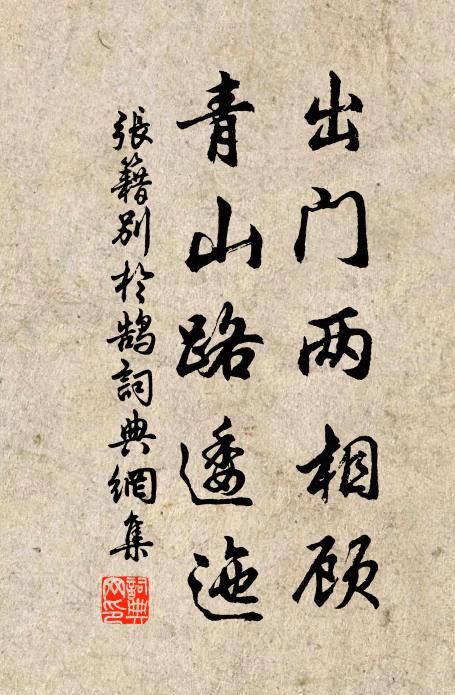 出门两相顾
青山路逶迤
張籍别於鹄詞典網集
詞典网印